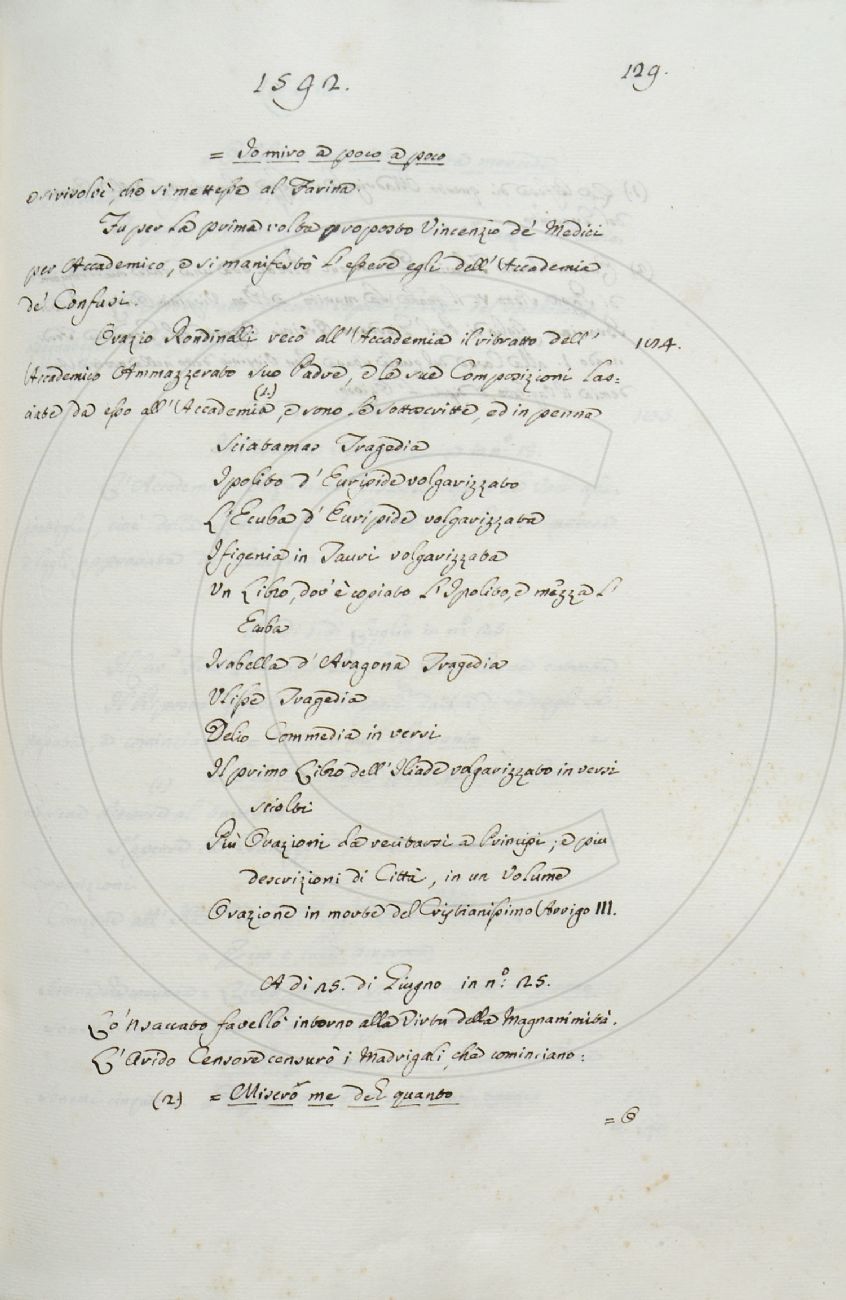 1592.
129.
= Io miro a poco a poco
e si risolvè, che si mettesse al Farina.
Fu per la prima volta proposto Vincenzio de' Medici
per Accademico, e si manifestò l'essere egli dell'Accademia
de' Confusi.
Orazio Rondinelli recò all'Accademia il ritratto dell'
Accademico Ammazzerato suo Padre, e le sue Composizioni las=
ciate da esso all'Accademia, (1.) e sono le sottoscritte, ed in penna
Sciatamas Tragedia
Ipolito d'Euripide volgarizzato
L'Ecuba d'Euripide volgarizzata
Ifigenia in Tauri volgarizzata
Un Libro, dov'è copiato l'Ipolito, e mezza l'
Ecuba
Isabella d'Aragona Tragedia
Ulisse Tragedia
Delio Commedia in versi
Il primo Libro dell'Iliade volgarizzato in versi
sciolti
Più Orazioni da recitarsi a Principi; e più
descrizioni di Città, in un Volume
Orazione in morte del Cristianissimo Arrigo III.
A di 25. di Giugno in n.o 25.
Lo 'Nsaccato favellò intorno alla Virtù della Magnanimità.
L'Arido Censore censurò i Madrigali, che cominciano:
(2.) = Misero me del quanto
= E